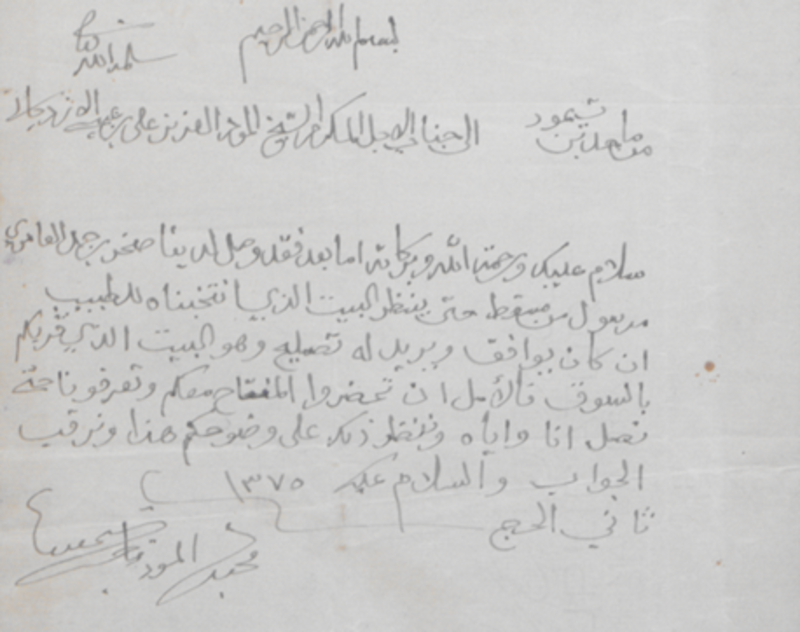 بسم الله الرحمن الرحيم
سلمه الله
من ماجد بن تيمور الى جناب الاجل المكرم الشيخ المود العزيز علي بن عبدالله
سلام عليك ورحمة الله وبركاته اما بعد فقد وصل لدينا صخر بن حمد العامري
مرسول من مسقط حتى ينظر البيت الذي انتخبناه للطبيب
ان كان يوافق ويريد له تصليح وهو البيت الذي قربكم
بالسوق فالأمل ان تحضروا المفتاح معكم وتعرفونا حتى
نصل انا واياه وننظر ذلك على وضوحكم هذا ونرقب
الجواب والسلام عليكم ١٣٧٥
ثاني الحج
محبك المود